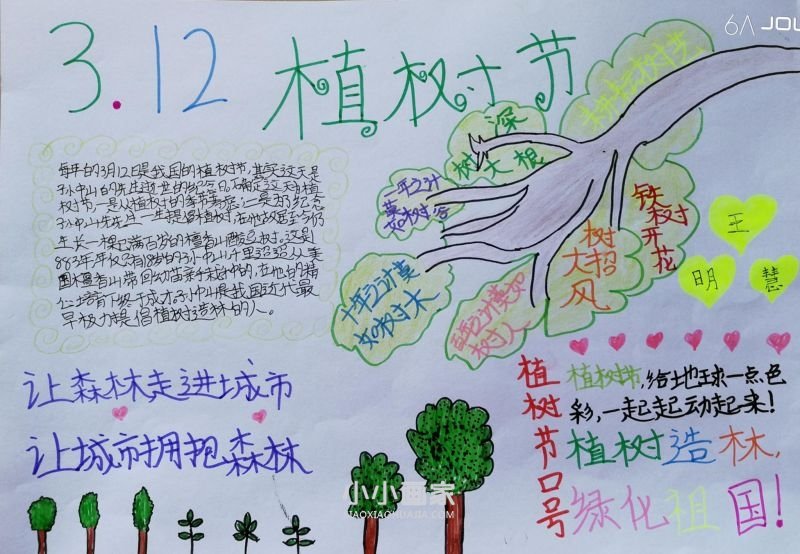 3.12 植树节
6A JOU
每年的3月12日是我国的植树节,其实这天是
孙中山的先生逝世的纪念日,确定这天为植
树节,一是从植树的季节考虑,二是为纪念
孙中山先生一生提倡植树,在他故居至今仍
生长一棵已满百岁的檀香山酸豆树。这是
863年,年仅有18岁的孙中山千里迢迢从美
国檀香山带回幼苗亲手栽种的,在他的精
心培育下终于成才。孙中山是我国近代最
早极力提倡植树造林的人。
深
树大根
一年之计
莫如树谷
十年之计莫
如树木
之计莫如
树人
树大招风
铁树开花
王
明
慧
让森林走进城市
让城市拥抱森林
植树节口号
植树节,给地球一点色
彩,一起起动起来!
植树造林,
绿化祖国!
小小画家
XIAOXIAOHUAJIA.COM